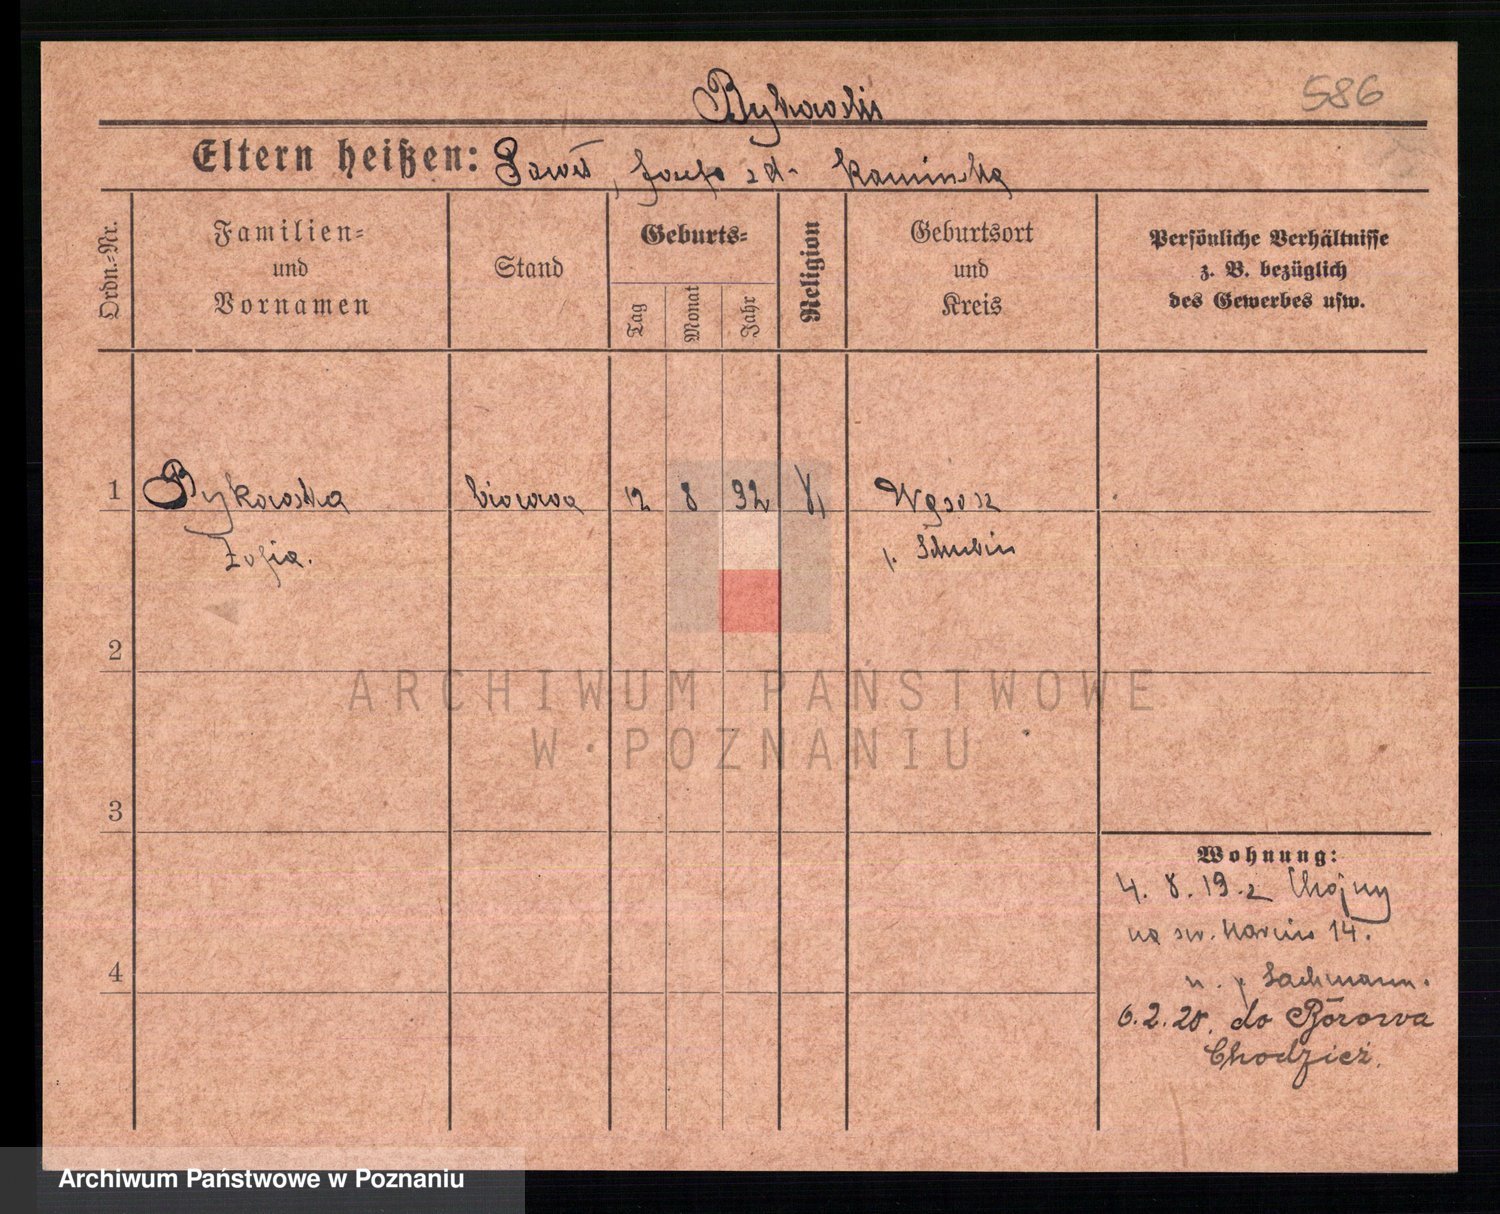 Bykowski
586
Eltern heißen: Paweł, Józefa zd. Kamińska
Ordn.-Nr.
Familien=
und
Vornamen
Stand
Geburts=
Tag
Monat
Jahr
Religion
Geburtsort
und
Kreis
Persönliche Verhältnisse
z. B. bezüglich
des Gewerbes usw.
1
Bykowska
12
8
92
k
Zofia.
p. Schubin
2
ARCHIWUM PAŃSTWOWE
W POZNANIU
3
Wohnung:
4. 8. 19. z Chojny
na św. Marcin 14.
4
Lachmann.
6.2.20. do Borowa
Chodzież.
Archiwum Państwowe w Poznaniu